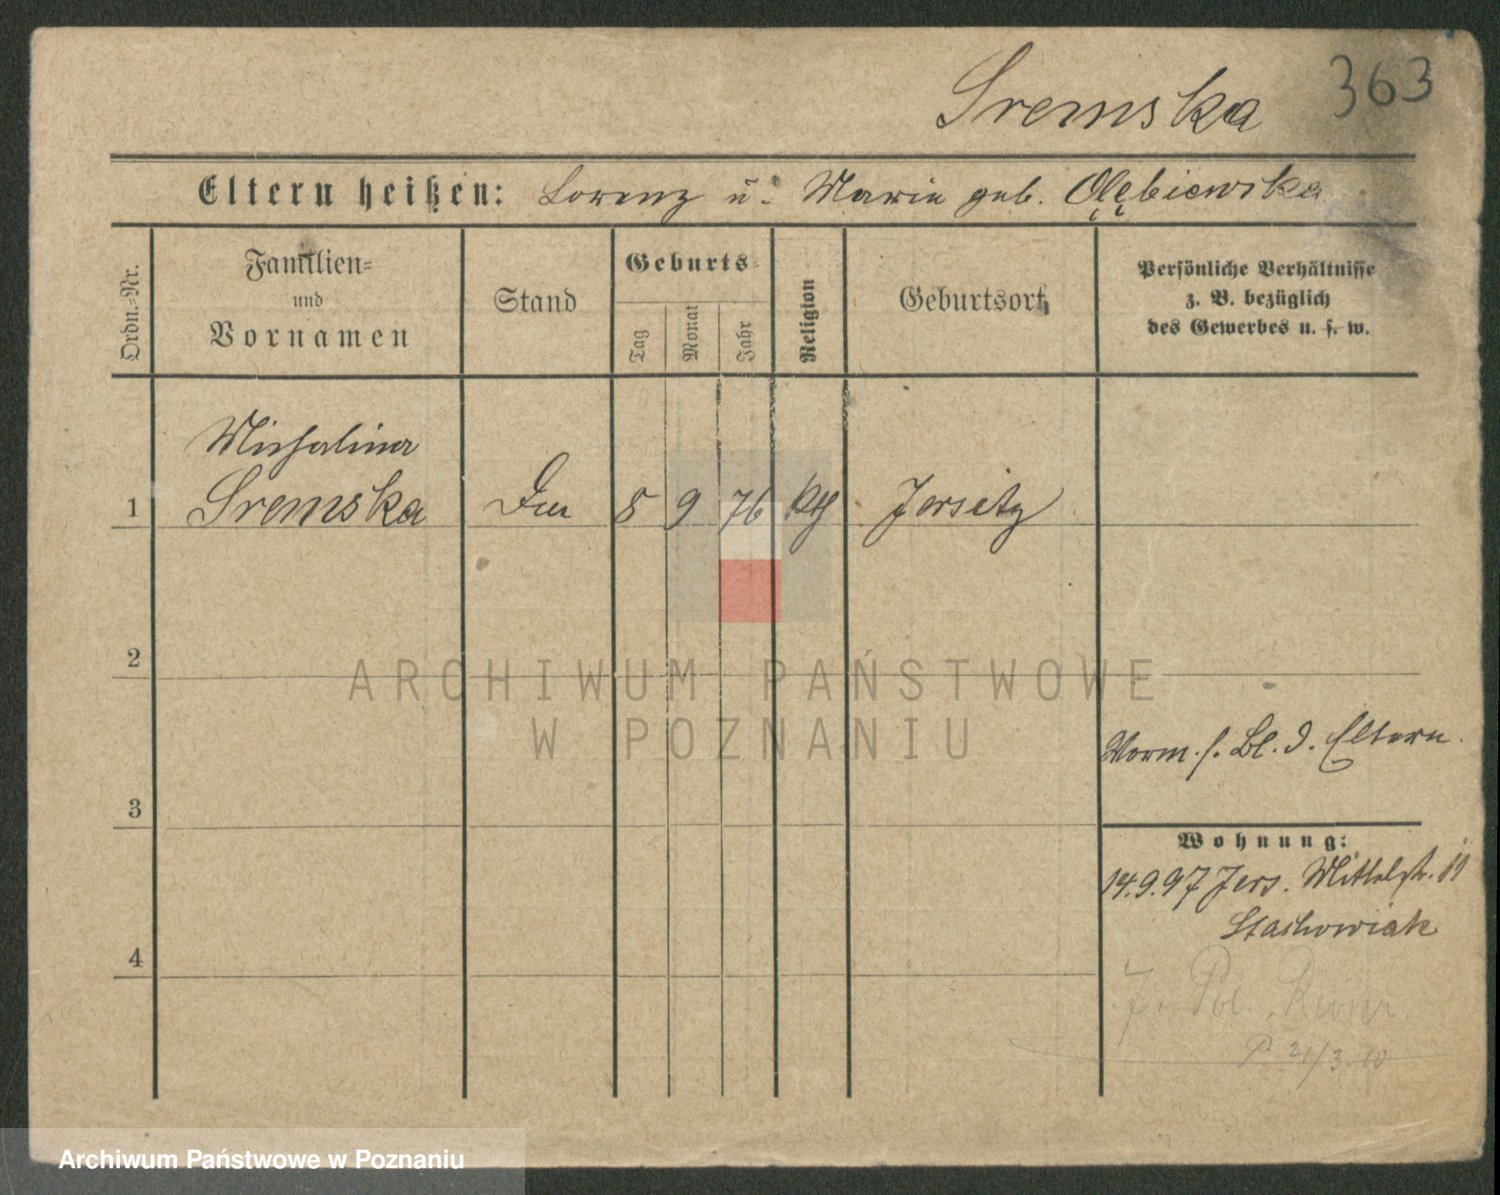 363
Sremska
Eltern heißen: Lorenz u. Marie geb. Olębiewska
Ordn.-Nr.
Familien-
und
Vornamen
Stand
Geburts-
Tag
Monat
Jahr
Religion
Geburtsort
Persönliche Verhältnisse
z. B. bezüglich
des Gewerbes u. s. w.
Michalina
1 Sremska 8 9 76 kth Jersitz
2
ARCHIWUM PAŃSTWOWE
W POZNANIU
Vorm. s. Bl. d. Eltern.
3
Wohnung:
14.9.97 Jers. Mittelstr. 11
Stachowiak
4
7. Pol. Revier
P. 21/3.10
Archiwum Państwowe w Poznaniu